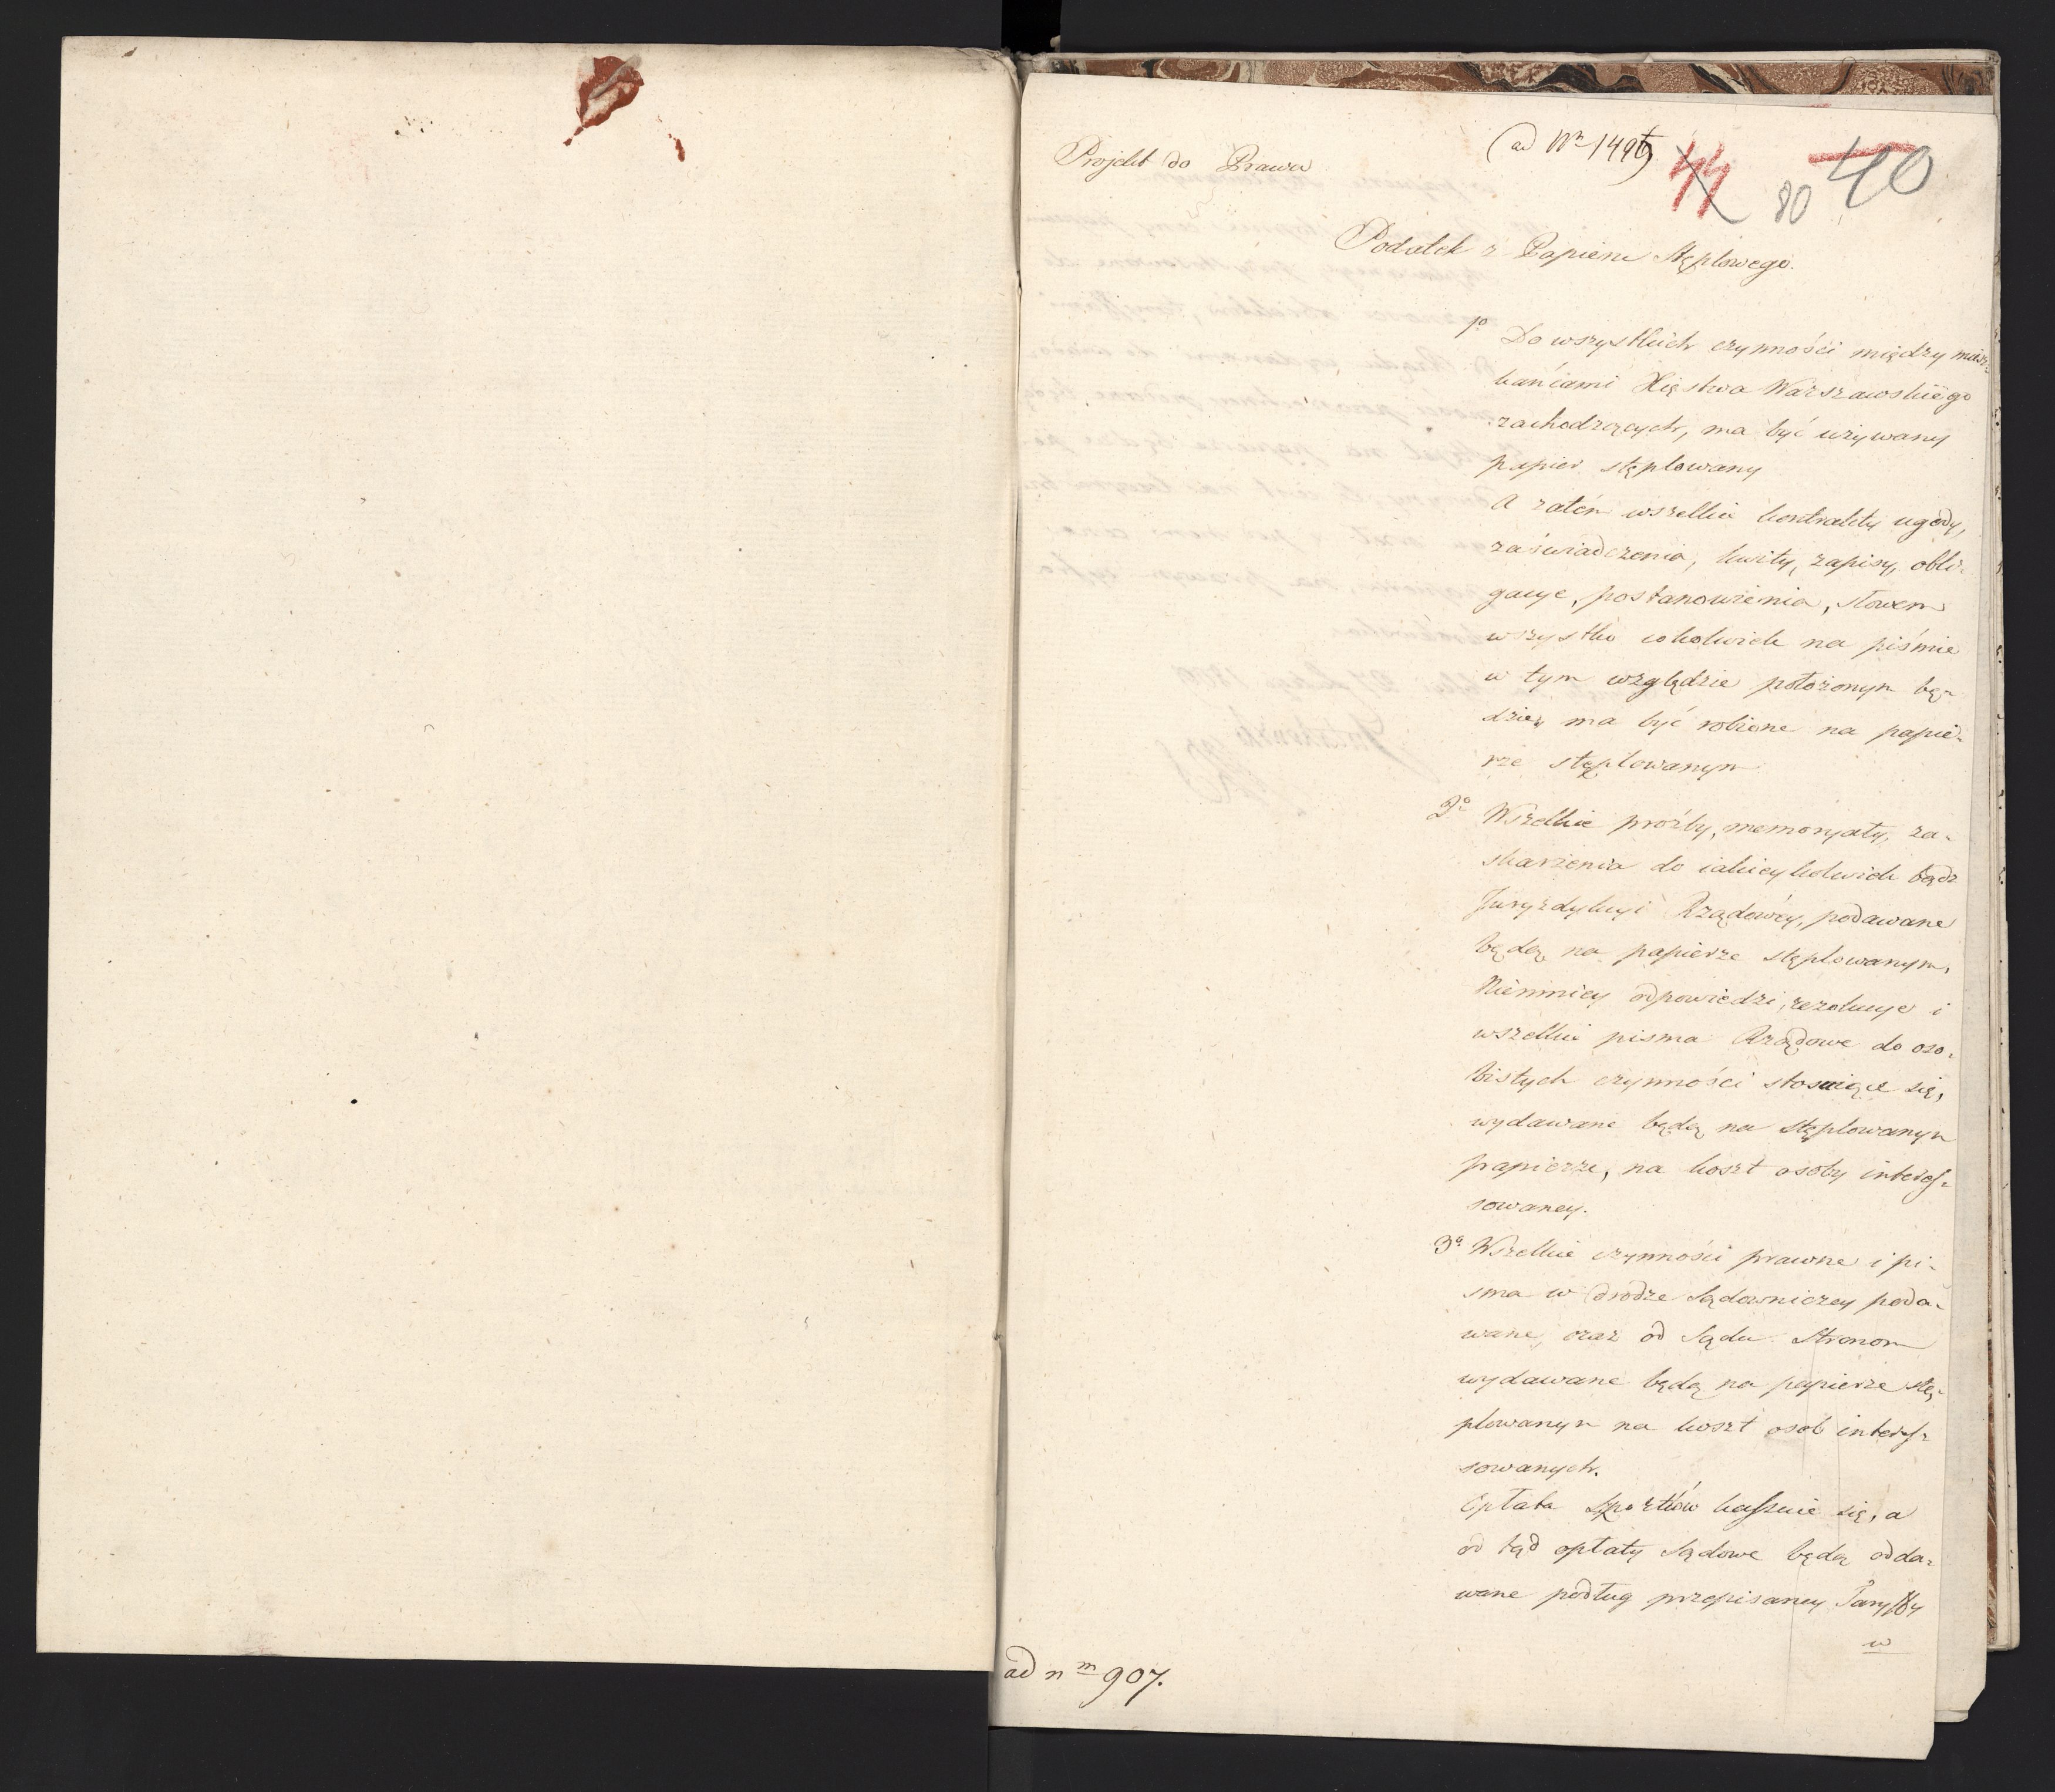 Projekt do Prawa
(ad Nm 1496)
44
80
40
Podatek z Papieru Stęplowego.
1o Do wszystkich czynności między miesz-
kańcami Xięstwa Warszawskiego
zachodzących, ma być używany
papier stęplowany
A zatém wszelkie kontrakty ugody,
zaświadczenia, kwity, zapisy, obli-
gacye, postanowienia, słowem
wszystko cokolwiek na piśmie
w tym względzie położonym bę-
dzie, ma być robione na papie-
rze stęplowanym
2o Wszelkie proźby, memoryały, za-
skarżenia do iakieykolwiek bądz
Juryzdykcyi Rządowéy, podawane
będą na papierze stęplowanym,
Niemniey odpowiedzi, rezolucye i
wszelkie pisma Rządowe do oso-
bistych czynności stosuiące się,
wydawane będą na stęplowanym
papierze, na koszt osoby interes-
sowaney.
3o Wszelkie czynności prawne i pi-
sma w drodze Sądowniczey poda-
wane, oraz od Sądu Stronom
wydawane będą na papierze stę-
plowanym na koszt osob interes-
sowanych.
Opłata Szportlów kassuie się, a
od tąd opłaty Sądowe będą odda-
wane podług przepisaney Taryffy
w
ad nm 907.